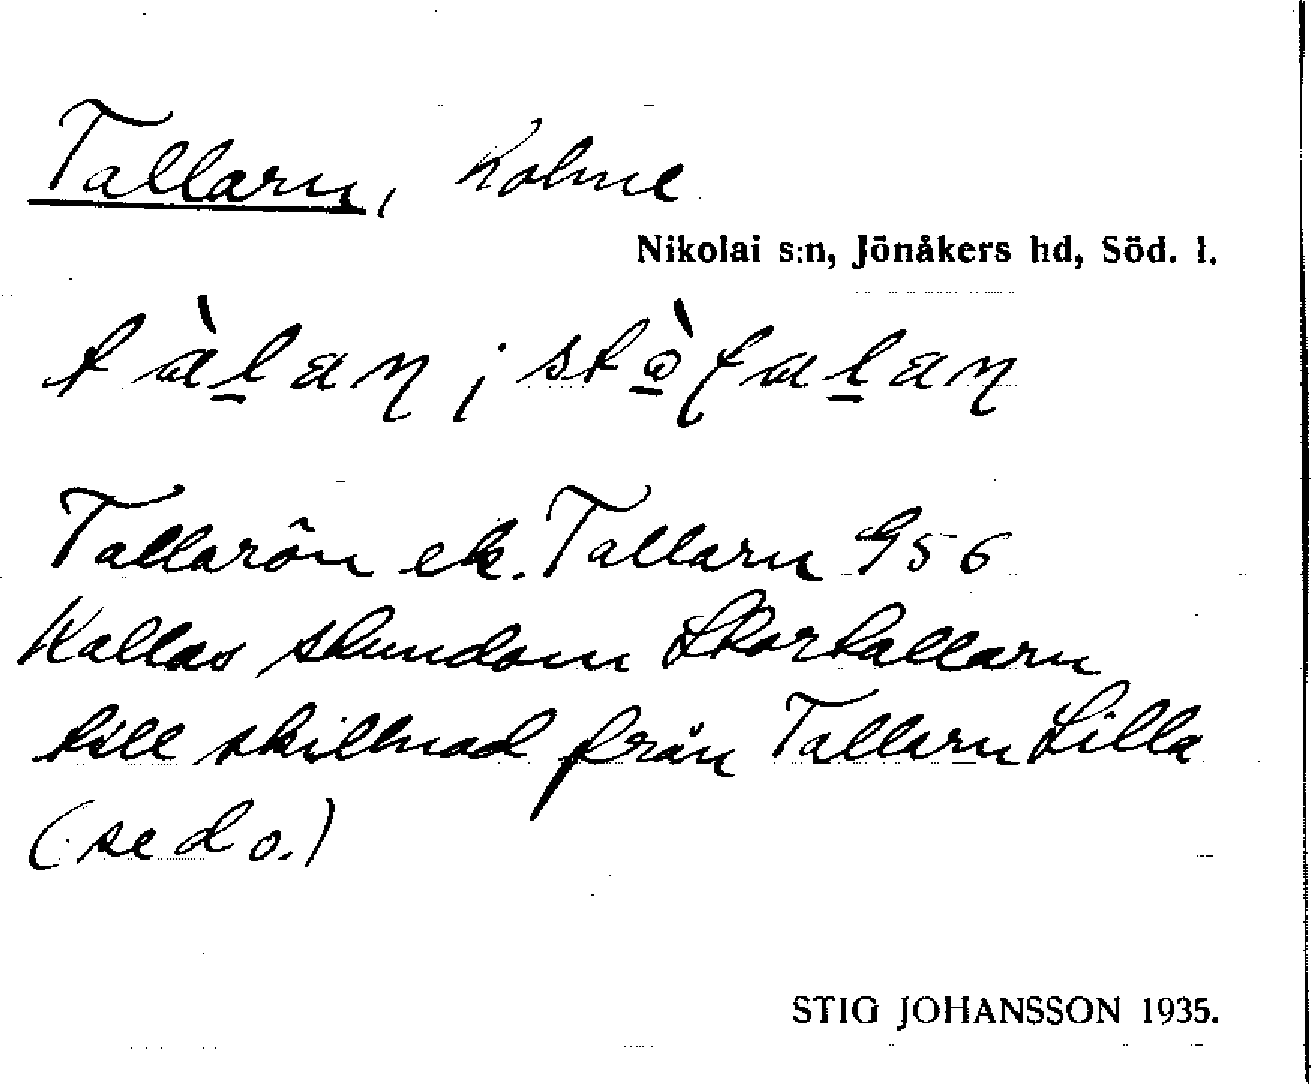 Tallarn, holme
Nikolai s:n, Jönåkers hd, Söd. l.
tàlaɳ; stòʈalaɳ
Tallarön ek. Tallarn 956
Kallas stundom Stortallarn
till skillnad från Tallarn Lilla
(se d o.)
STIG JOHANSSON 1935.